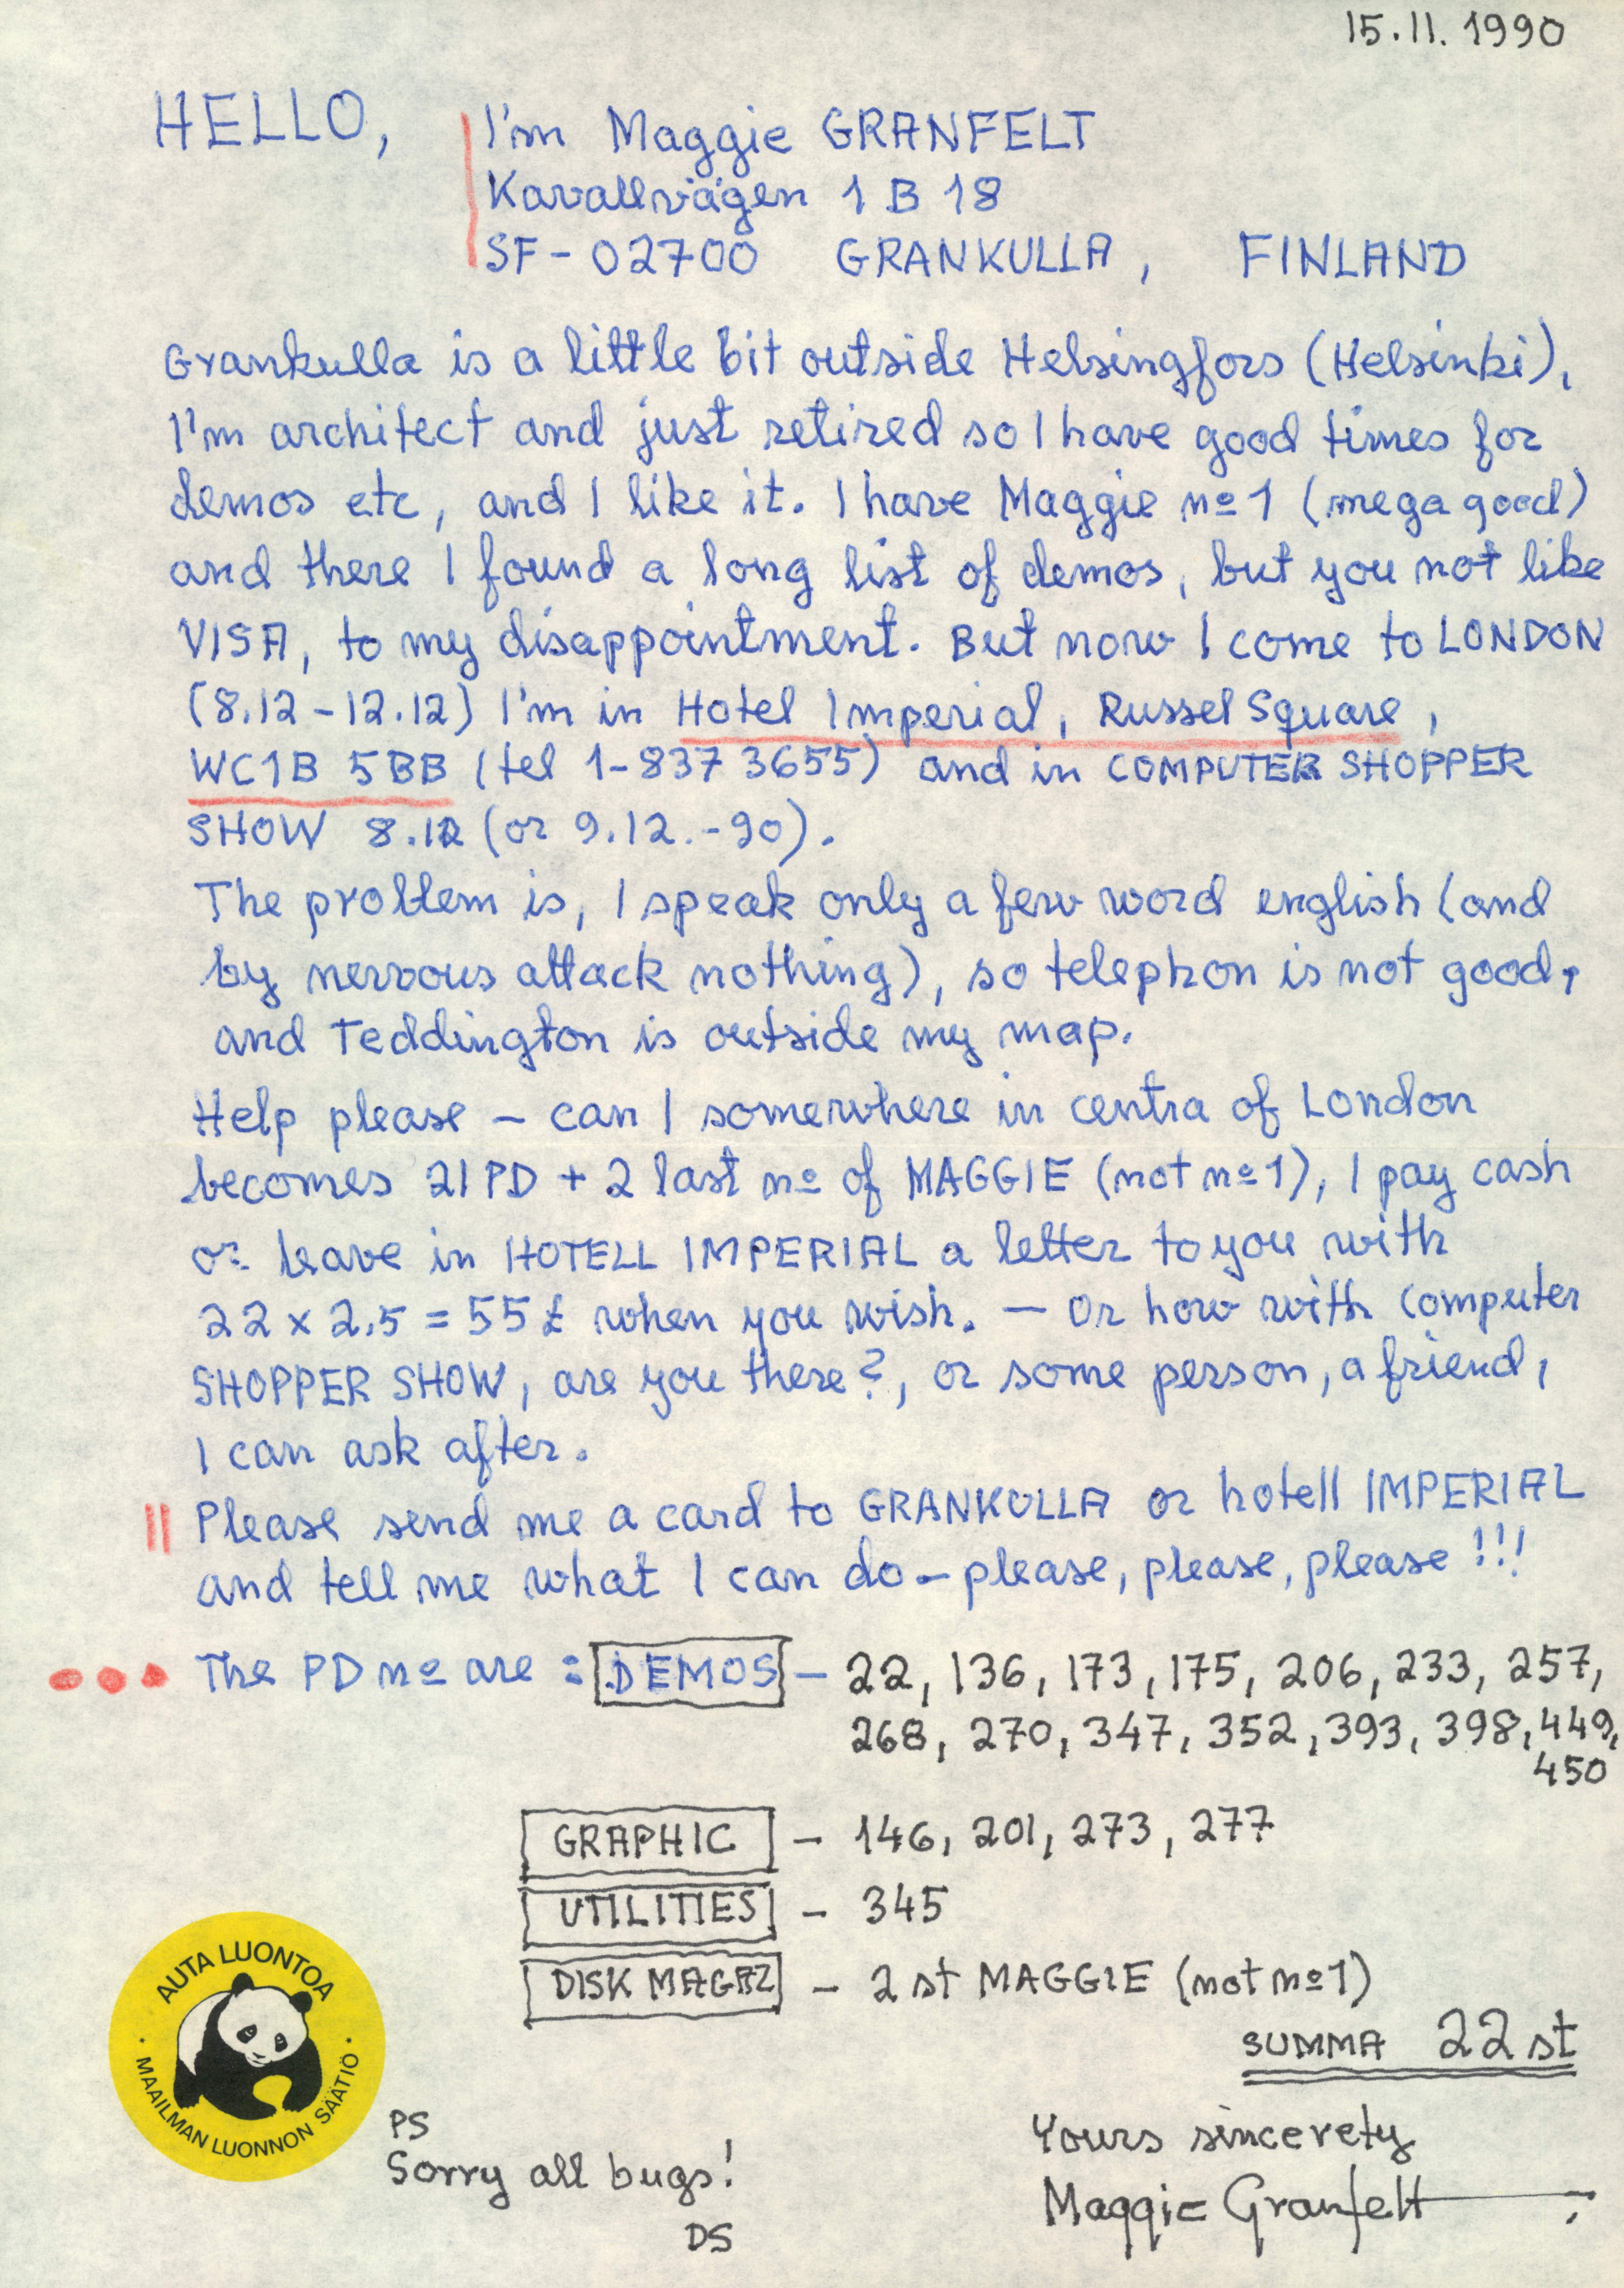 15.11.1990
HELLO,
I'm Maggie GRANFELT
Kavallvägen 1 B 18
SF-02700 GRANKULLA, FINLAND
Grankulla is a little bit outside Helsingfors (Helsinki),
I'm architect and just retired so I have good times for
demos etc, and I like it. I have Maggie no 1 (mega good)
and there I found a long list of demos, but you not like
VISA, to my disappointment. But now I come to LONDON
(8.12-12.12) I'm in Hotel Imperial, Russel Square,
WC1B 5BB (tel 1-837 3655) and in COMPUTER SHOPPER
SHOW 8.12 (or 9.12.-90).
The problem is, I speak only a few word english (and
by nervous attack nothing), so telephon is not good,
and Teddington is outside my map.
Help please - can I somewhere in centra of London
becomes 21 PD + 2 last no of MAGGIE (not no 1), I pay cash
or leave in HOTELL IMPERIAL a letter to you with
22 x 2.5 = 55 £ when you wish. - Or how with Computer
SHOPPER SHOW, are you there?, or some person, a friend,
I can ask after.
Please send me a card to GRANKULLA or hotell IMPERIAL
and tell me what I can do - please, please, please !!!
The PD no are : DEMOS - 22, 136, 173, 175, 206, 233, 257,
268, 270, 347, 352, 393, 398, 449,
450
GRAPHIC - 146, 201, 273, 277
UTILITIES - 345
DISK MAGAZ - 2 st MAGGIE (not no 1)
SUMMA 22 st
AUTA LUONTOA
· MAAILMAN LUONNON SÄÄTIÖ ·
PS
Sorry all bugs!
DS
Yours sincerety
Maggie Granfelt